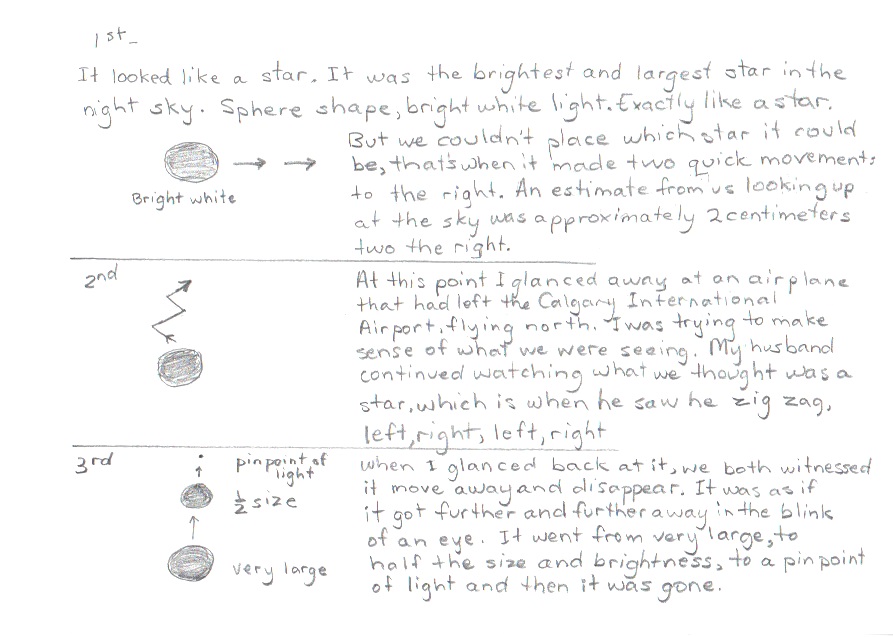 1st-
It looked like a star. It was the brightest and largest star in the
night sky. Sphere shape, bright white light. Exactly like a star.
But we couldn't place which star it could
be, that's when it made two quick movements
to the right. An estimate from us looking up
at the sky was approximately 2 centimeters
two the right.
Bright white
2nd
At this point I glanced away at an airplane
that had left the Calgary International
Airport, flying north. I was trying to make
sense of what we were seeing. My husband
continued watching what we thought was a
star, which is when he saw he zig zag,
left, right, left, right
3rd
pinpoint of
light
1/2 size
very large
when I glanced back at it, we both witnessed
it move away and disappear. It was as if
it got further and further away in the blink
of an eye. It went from very large, to
half the size and brightness, to a pinpoint
of light and then it was gone.